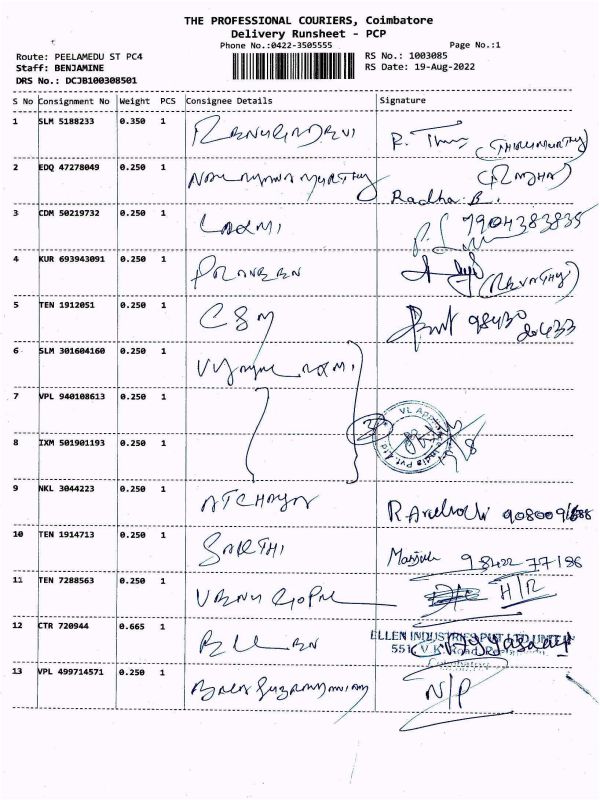 THE PROFESSIONAL COURIERS, Coimbatore
Delivery Runsheet - PCP
Phone No.:0422-3505555 Page No.:1
Route: PEELAMEDU ST PC4 RS No.: 1003085
Staff: BENJAMINE RS Date: 19-Aug-2022
DRS No.: DCJB100308501
S No Consignment No Weight PCS Consignee Details Signature
1 SLM 5188233 0.350 1 RENUGADEVI R.
2 EDQ 47278049 0.250 1 Radha. B.
3 CDM 50219732 0.250 1 LAXMI 7904383835
4 KUR 693943091 0.250 1 PRAVEEN (REVATHY)
5 TEN 1912051 0.250 1 CSM 98430
6 SLM 301604160 0.250 1
7 VPL 940108613 0.250 1
8 IXM 501901193 0.250 1
9 NKL 3044223 0.250 1 ATCHAYA
10 TEN 1914713 0.250 1 SAKTHI 98422 77186
11 TEN 7288563 0.250 1 VENU GOPAL H/R
12 CTR 720944 0.665 1 ELLEN ELLEN INDUSTRIES
551, V K Road
13 VPL 499714571 0.250 1 N/P